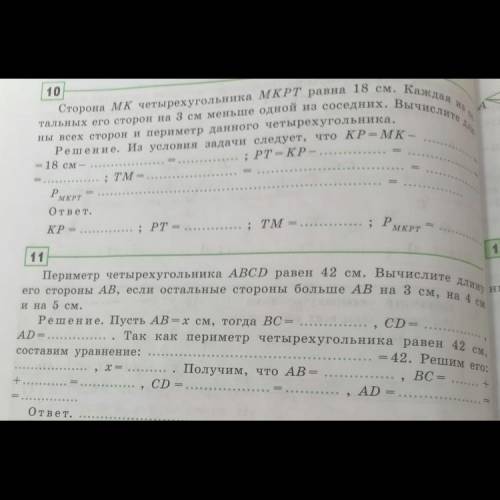 10
Сторона MK четырехугольника MKPT равна 18 см. Каждая из ос
тальных его сторон на 3 см меньше одной из соседних. Вычислите дли
ны всех сторон и периметр данного четырехугольника.
Решение. Из условия задачи следует, что KP = MK – ............
= 18 см – ............ = ............ ; PT = KP – ............ = ............
= ............ ; TM = ............ = ............ = ............
P MKPT = ............ = ............
Ответ.
KP = ............ ; PT = ............ ; TM = ............ ; P MKPT = ............
11
Периметр четырехугольника ABCD равен 42 см. Вычислите длину
его стороны AB, если остальные стороны больше AB на 3 см, на 4 см
и на 5 см.
Решение. Пусть AB = x см, тогда BC = ............ , CD = ............ ,
AD = ............ . Так как периметр четырехугольника равен 42 см,
составим уравнение: ............ = 42. Решим его:
............ , x = ............ . Получим, что AB = ............ , BC = ............ +
+ ............ = ............ , CD = ............ = ............ , AD = ............ =
= ............
Ответ. ............